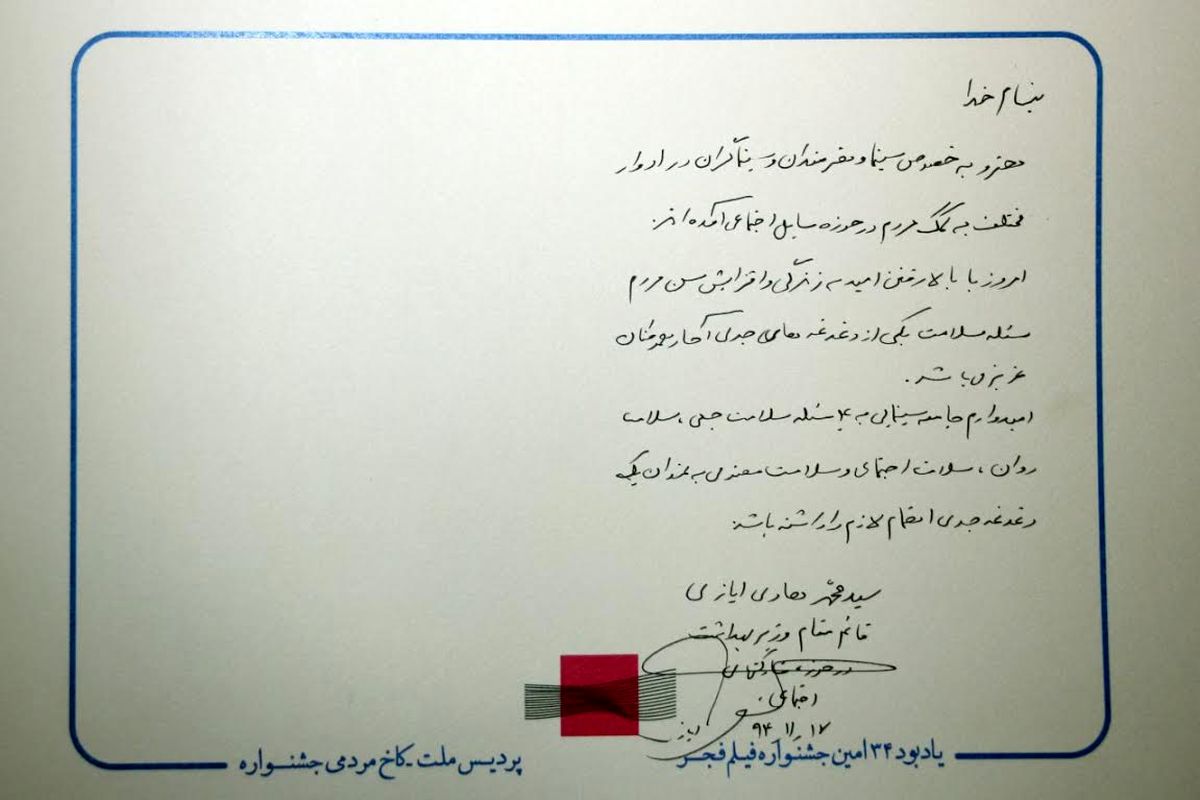 بنام خدا
هنر و به خصوص سینما و هنرمندان و سینماگران در ادوار
مختلف به کمک مردم در حوزه مسایل اجتماعی آمده اند.
امروز با بالا رفتن امید به زندگی و افزایش سن مردم
مسئله سلامت یکی از دغدغه های جدی آحاد هموطنان
عزیز می باشد.
امیدوارم جامعه سینمایی به ۴ مسئله سلامت جسمی، سلامت
روان، سلامت اجتماعی و سلامت معنوی به عنوان یک
دغدغه جدی اهتمام لازم را داشته باشد.
سید محمد هادی ایازی
قائم مقام وزیر بهداشت
در حوزه مشارکتهای
اجتماعی.
۹۴/۱۱/۱۷
یادبود ۳۴ امین جشنواره فیلم فجر
پردیس ملت - کاخ مردمی جشنواره